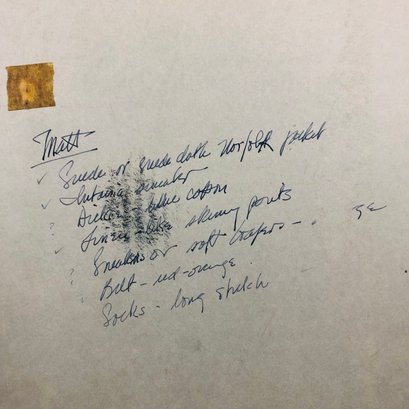 Matt
✓ Suede or suede cloth Norfolk jacket
✓ sweater
? Dickey - blue cotton
✓ like skinny pants
? Sneakers or soft loafers -
? Belt - red-orange
Socks - long stretch